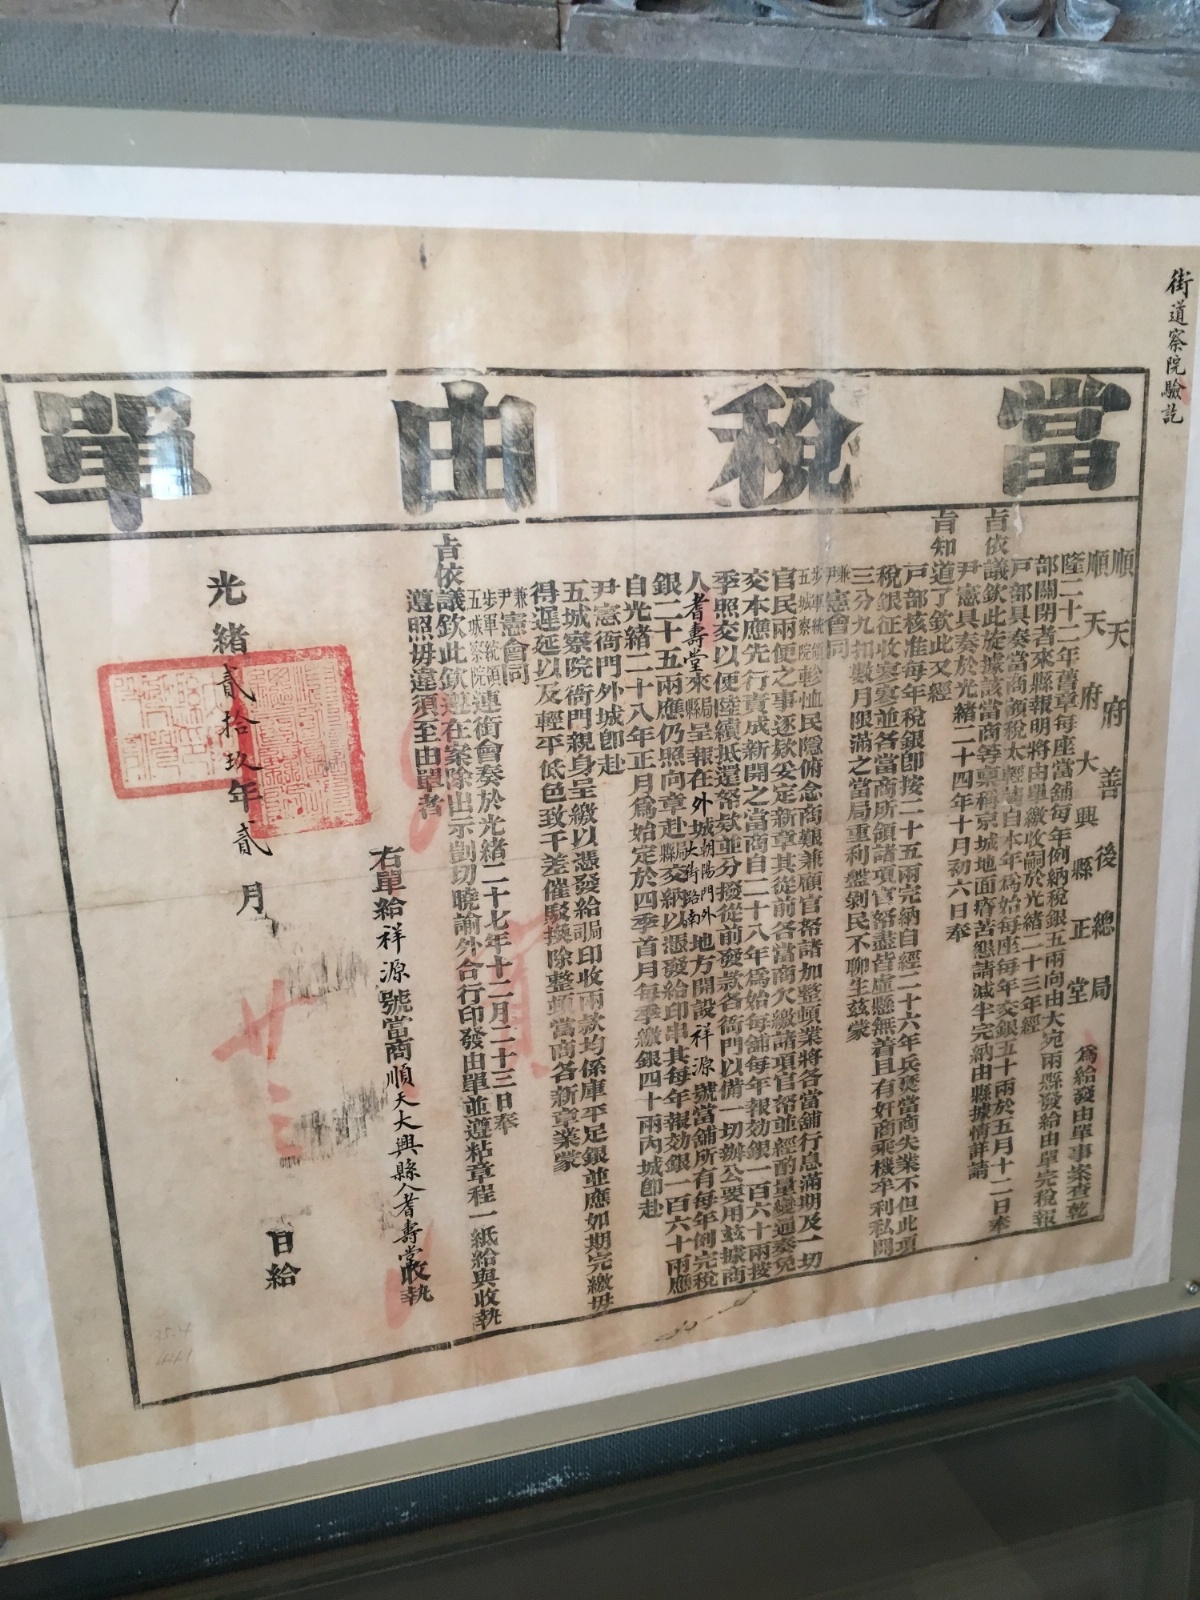 街道察院驗訖
當稅由單
順天府善後總局
順天府大興縣正堂
為給發由單事案查乾
隆二十二年舊章每座當舖每年例納稅銀五兩向由大宛兩縣發給由單完稅報
部關閉者來縣報明將由單繳收嗣於光緒二十三年經
戶部具奏當商領稅太輕請自本年為始每座每年交銀五十兩於五月十二日奉
旨依議欽此旋據該當商等稟稱京城地面瘠苦懇請減半完納由縣據情詳請
尹憲具奏於光緒二十四年十月初六日奉
旨知道了欽此又經
戶部核准每年稅銀卽按二十五兩完納自經二十六年兵燹當商失業不但此項
稅銀征收寥寥並各當商所領諸項官帑盡皆虛懸無着且有奸商乘機牟利私開
三分九扣數月限滿之當局重利盤剝民不聊生茲蒙
兼尹憲會同
步軍統領五城察院軫恤民隱俯念商艱兼顧官帑諸加整頓業將各當舖行息滿期及一切
官民兩便之事逐欵妥定新章其從前各當商欠繳諸項官帑並經酌量變通奏免
交本應先行責成新開之當商自二十八年為始每舖每年報効銀一百六十兩按
季照交以便陸續抵還帑欵並分撥從前發款各衙門以備一切辦公要用茲據商
人耆壽堂來局縣呈報在外城朝陽門外大街路南地方開設祥源號當舖所有每年例完稅
銀二十五兩應仍照向章赴局縣交納以憑發給印串其每年報効銀一百六十兩應
自光緒二十八年正月為始定於四季首月每季繳銀四十兩內城卽赴
尹憲衙門外城卽赴
五城察院衙門親身呈繳以憑發給局司印收兩款均係庫平足銀並應如期完繳毋
得遲延以及輕平低色致干差催駁換除整頓當商各新章業蒙
兼尹憲會同
步軍統領五城察院連銜會奏於光緒二十七年十二月二十三日奉
旨依議欽此欽遵在案除出示剴切曉諭外合行印發由單並遵粘章程一紙給與收執
遵照毋違須至由單者
右單給祥源號當商順天大興縣人耆壽堂收執
光緒貳拾玖年貳月 廿三 日給